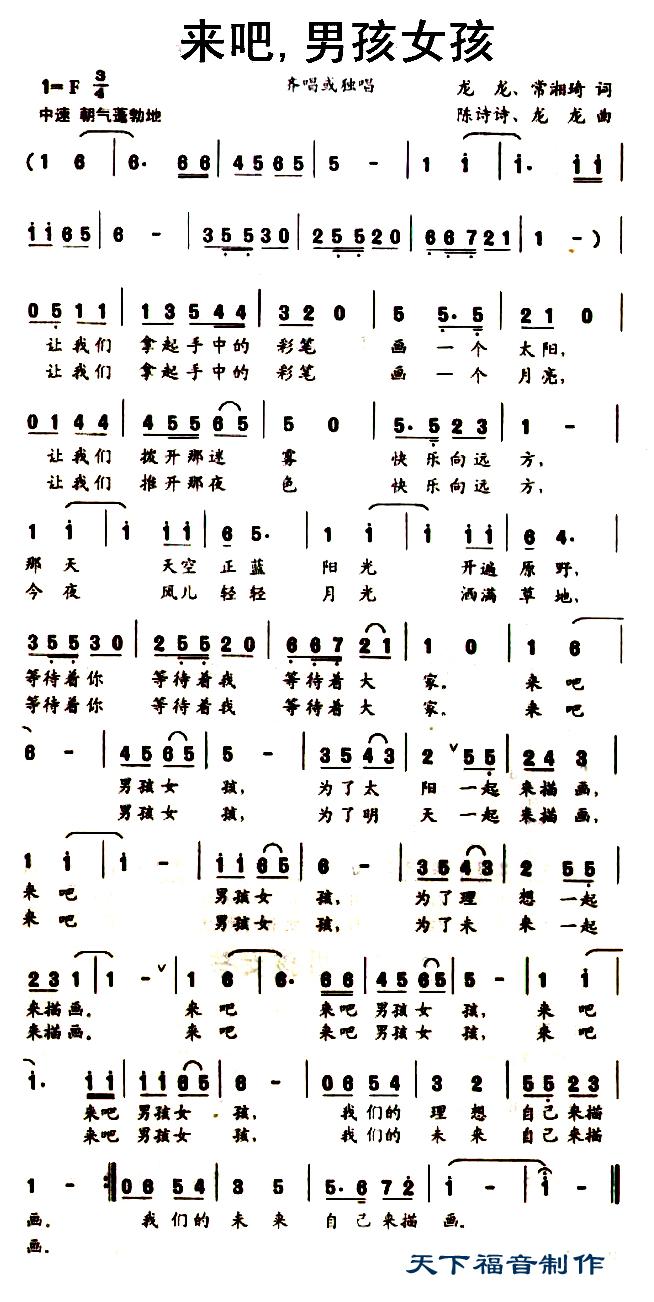 来吧,男孩女孩
1=F 3/4
齐唱或独唱
龙 龙、常湘琦 词
中速 朝气蓬勃地
陈诗诗、龙 龙 曲
(1 6 | 6· 66 | 4565 | 5 - | 1 i | i· ii |
ii65 | 6 - | 35530 | 25520 | 66721 | 1 - ) |
05 11 | 13544 | 320 | 5 5·5 | 210 |
让我们 拿起手中的 彩笔 画 一个 太阳,
让我们 拿起手中的 彩笔 画 一个 月亮,
0144 | 45565 | 5 0 | 5·5 23 | 1 - |
让我们 拨开那迷 雾 快乐向远 方,
让我们 推开那夜 色 快乐向远 方,
1 i | i ii | 6 5· | 1 i | i ii | 6 4· |
那天 天空 正蓝 阳光 开遍 原野,
今夜 风儿 轻轻 月光 洒满 草地,
35530 | 25520 | 66721 | 1 0 | 1 6 |
等待着你 等待着我 等待着大 家。 来吧
等待着你 等待着我 等待着大 家。 来吧
6 - | 4565 | 5 - | 3543 | 2 ˅ 55 | 24 3 |
男孩女 孩, 为了太 阳 一起 来描画,
男孩女 孩, 为了明 天 一起 来描画,
1 i | i - | ii65 | 6 - | 3543 | 2 55 |
来吧 男孩女 孩, 为了理 想 一起
来吧 男孩女 孩, 为了未 来 一起
23 1 | 1 - ˅ | 1 6 | 6· 66 | 4565 | 5 - | 1 i |
来描画。 来吧 来吧 男孩女 孩, 来吧
来描画。 来吧 来吧 男孩女 孩, 来吧
i· ii | ii65 | 6 - | 0654 | 3 2 | 5523 |
来吧 男孩女 孩, 我们的 理想 自己来描
来吧 男孩女 孩, 我们的 未来 自己来描
1 - :‖ 0654 | 3 5 | 5·672 | i - | i - ‖
画。 我们的 未来 自己来描 画。
画。
天下福音制作